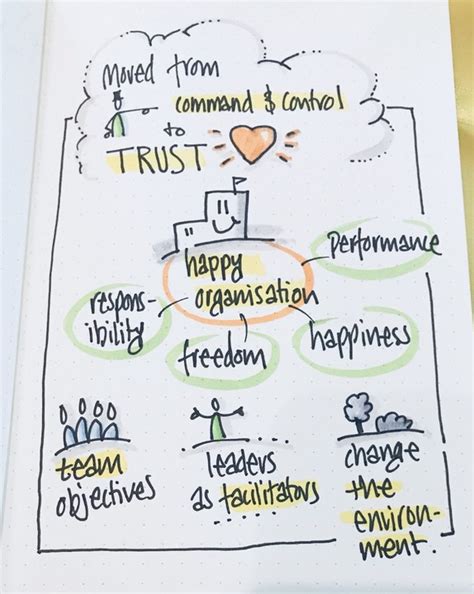 Moved from
command & control
to
TRUST
happy
organisation
performance
respons-
ibility
freedom
happiness
team
objectives
leaders
as facilitators
change
the
environ-
ment.